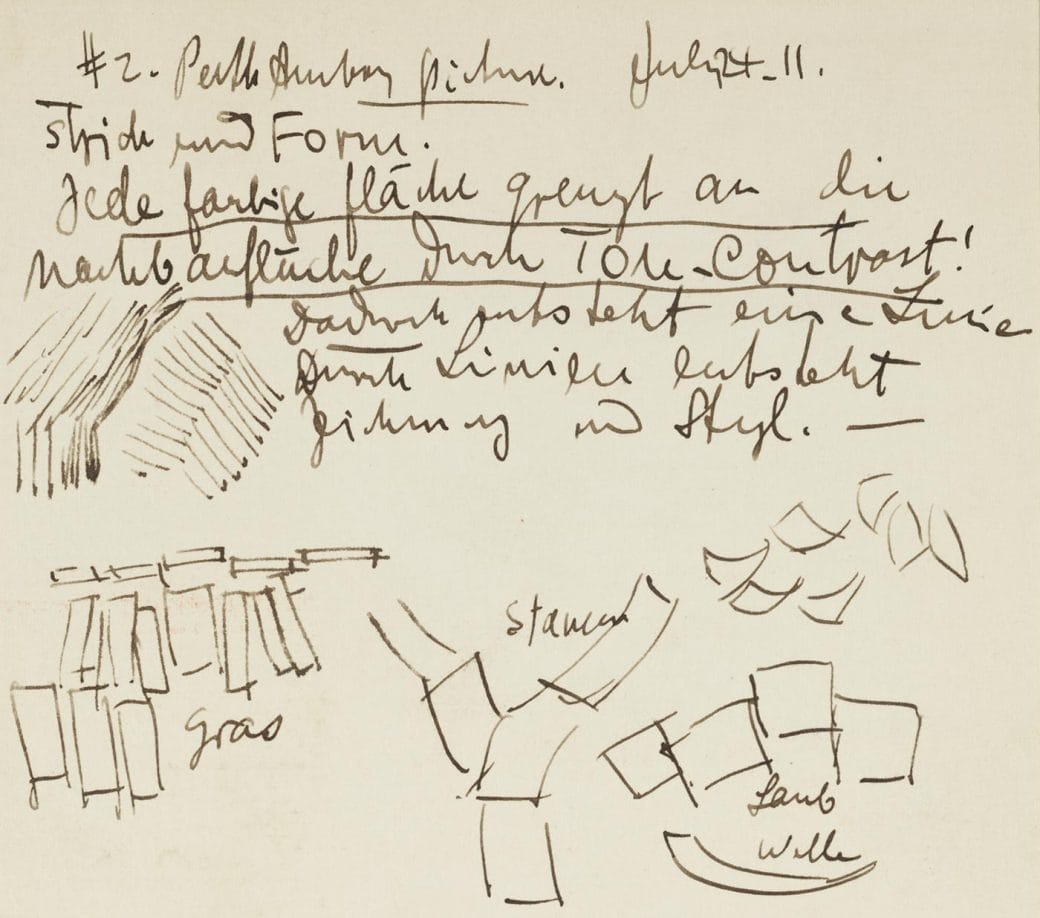 #2. Perth Amboy picture. July 24-11.
Strich und Form.
Jede farbige fläche grenzt an die
Nachbarfläche durch Ton-Contrast!
Dadurch entsteht eine Linie
Durch Linien entsteht
Zeichnung und Styl. —
Stamm
gras
Laub
Welle